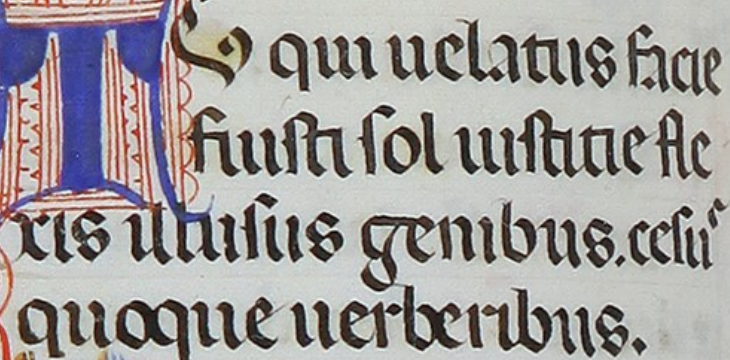 TU qui uelatus facie
fuisti sol iustitie fle
xis illusus genibus. cesus
quoque uerberibus.